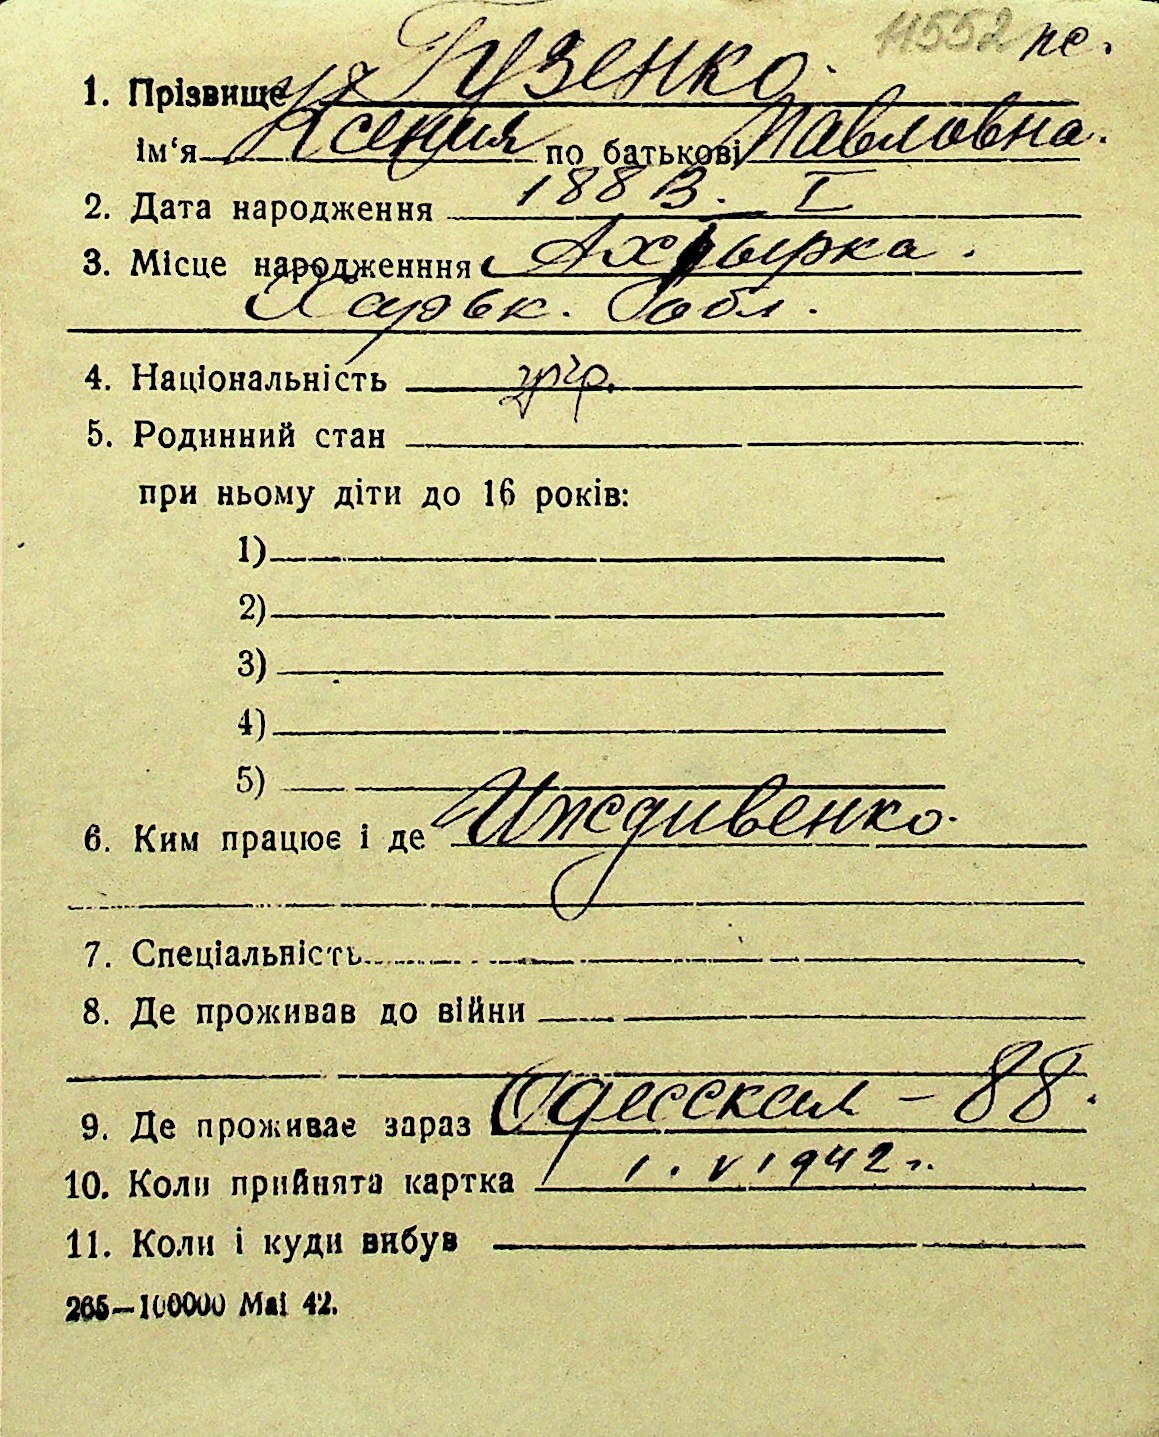 11552 пс.
1. Прізвище Гузенко.
ім'я Ксения по батькові Павловна.
2. Дата народження 1883. I
3. Місце народженння Ахтырка.
Харьк. обл.
4. Національність укр.
5. Родинний стан
при ньому діти до 16 років:
1)
2)
3)
4)
5)
6. Ким працює і де Иждивенко.
7. Спеціальність
8. Де проживав до війни
9. Де проживає зараз Одесская - 88.
10. Коли прийнята картка 1. V 1942 г.
11. Коли і куди вибув
265—100000 Маі 42.